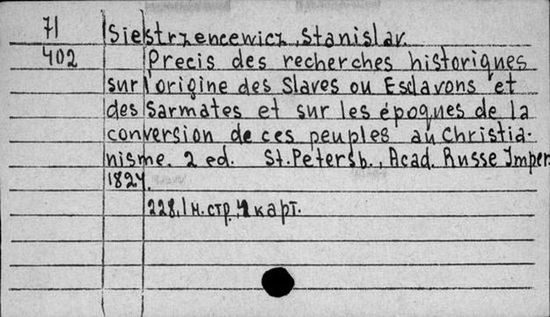 71 Siestrzencewicz, Stanislav.
402 Precis des recherches historiques
sur l'origine des Slaves ou Esclavons et
des Sarmates et sur les époques de la
conversion de ces peuples au Christia-
nisme. 2 ed. St. Petersb., Acad. Russe Imper.
1824.
228, 1 н. стр., 2 карт.